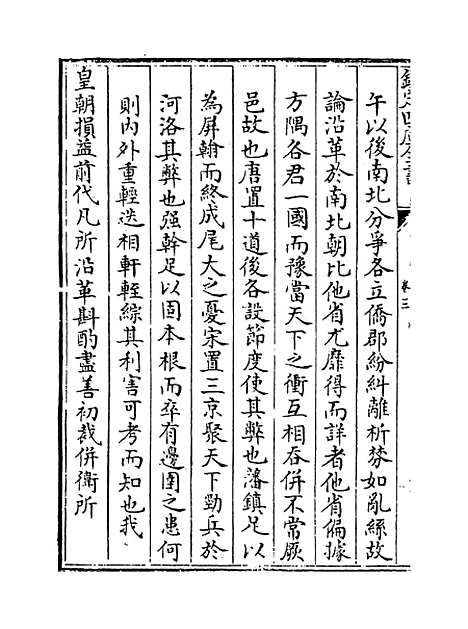 欽定四庫全書
卷三
午以後南北分爭各立僑郡紛糾離析棼如亂絲故
論沿革於南北朝比他省尤靡得而詳者他省偏據
方隅各君一國而豫當天下之衝互相吞併不常厥
邑故也唐置十道後各設節度使其弊也藩鎮足以
為屏翰而終成尾大之憂宋置三京聚天下勁兵於
河洛其弊也强幹足以固本根而卒有邊圉之患何
則内外重輕迭相軒輊綜其利害可考而知也我
皇朝損益前代凡所沿革斟酌盡善初裁併衛所